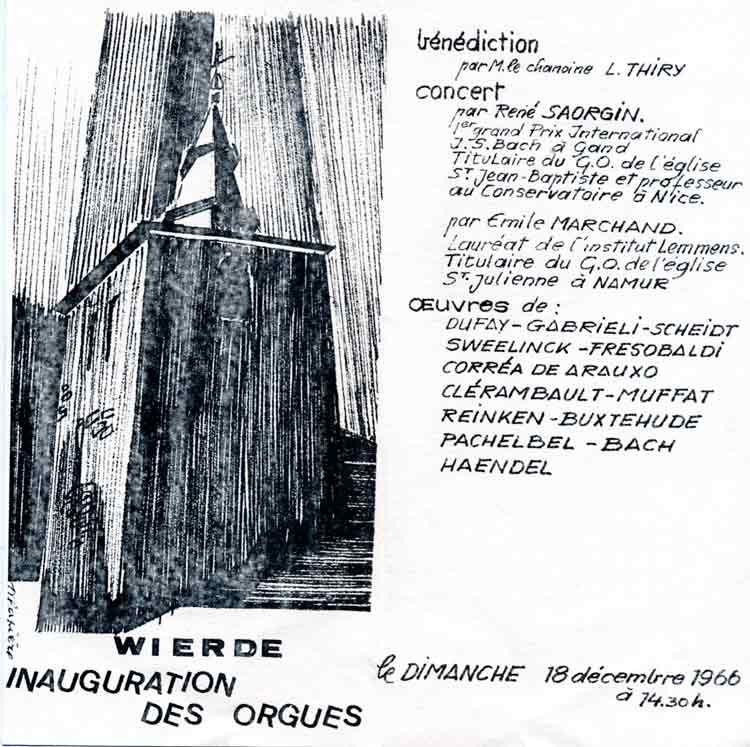 bénédiction
par M. le chanoine L. THIRY
concert
par René SAORGIN.
1er grand Prix International
J.S. Bach à Gand
Titulaire du G.O. de l'église
St. Jean-Baptiste et professeur
au Conservatoire à Nice.
par Emile MARCHAND.
Lauréat de l'institut Lemmens.
Titulaire du G.O. de l'église
St. Julienne à NAMUR
ŒUVRES de :
DUFAY-GABRIELI-SCHEIDT
SWEELINCK-FRESOBALDI
CORRÉA DE ARAUXO
CLÉRAMBAULT-MUFFAT
REINKEN-BUXTEHUDE
PACHELBEL - BACH
HAENDEL
WIERDE
INAUGURATION
DES ORGUES
le DIMANCHE 18 décembre 1966
à 14.30h.